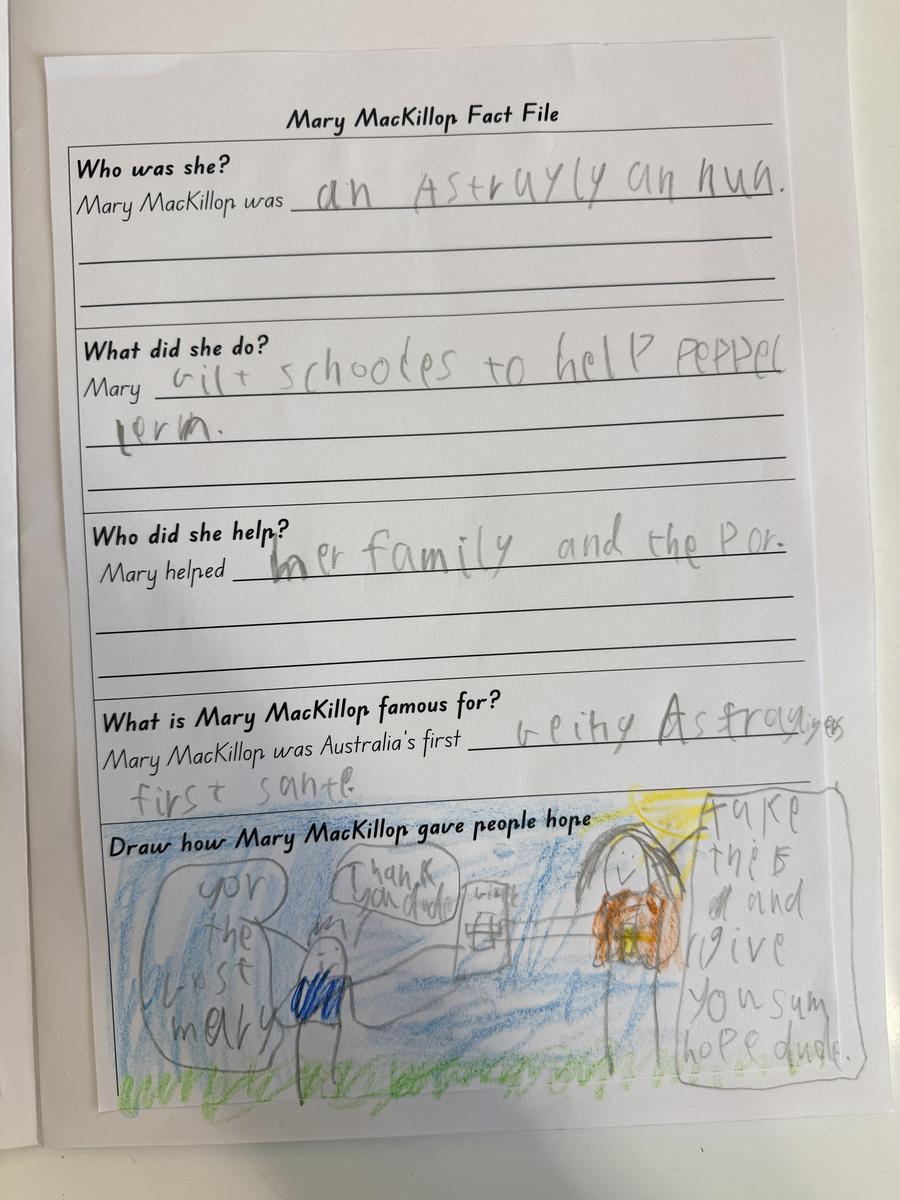 Mary MacKillop Fact File
Who was she?
Mary MacKillop was an Astrayly an nun.
What did she do?
Mary bilt schooles to help peppel
lern.
Who did she help?
Mary helped her family and the por.
What is Mary MacKillop famous for?
Mary MacKillop was Australia's first being Astrayligers
first sante.
Draw how Mary MacKillop gave people hope
yor
the
best
mery
Thank
you dude
take
this
and
give
you sum
hope dude.